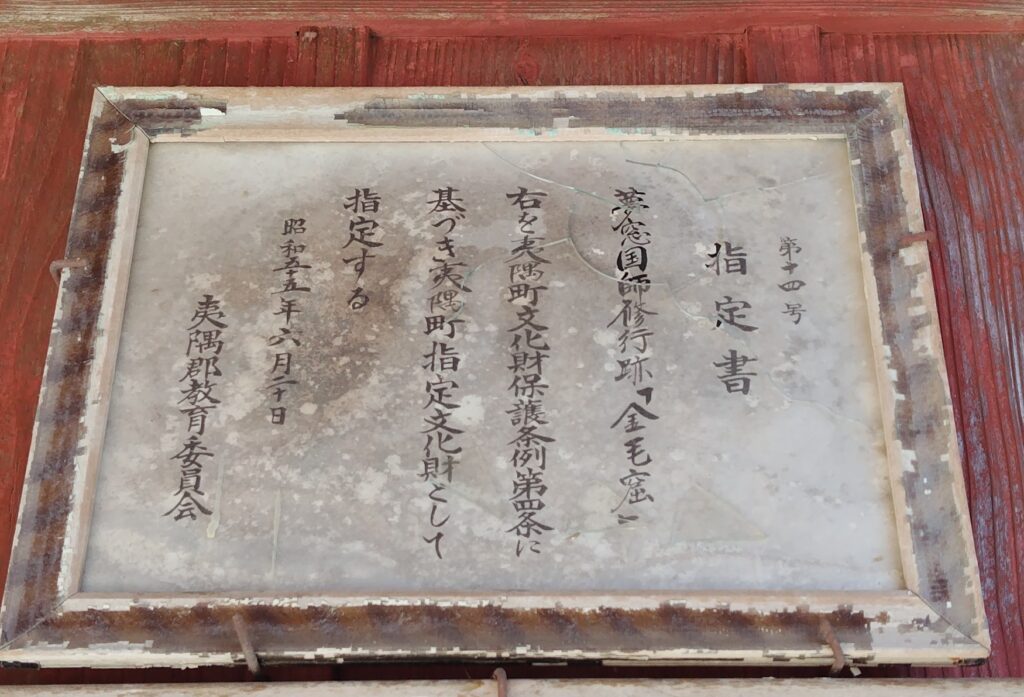 第十四号
指定書
夢窓国師修行跡「金毛窟」
右を夷隅町文化財保護条例第四条に
基づき夷隅町指定文化財として
指定する
昭和五十五年六月二十日
夷隅郡教育委員会